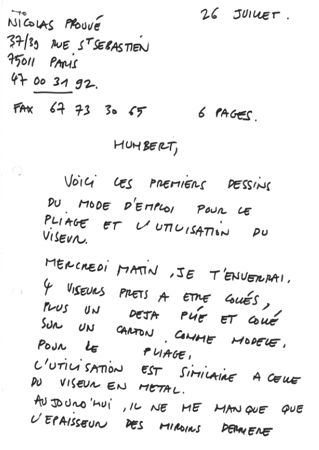 NICOLAS PROUVÉ
26 JUILLET.
37/39 RUE ST SEBASTIEN
75011 PARIS
47 00 31 92.
FAX 67 73 30 65
6 PAGES.
HUMBERT,
VOICI LES PREMIERS DESSINS
DU MODE D'EMPLOI POUR LE
PLIAGE ET L'UTILISATION DU
VISEUR.
MERCREDI MATIN, JE T'ENVERRAI.
4 VISEURS PRETS A ETRE COLLÉS,
PLUS UN DEJA PLIÉ ET COLLÉ
SUR UN CARTON COMME MODELE.
POUR LE PLIAGE.
L'UTILISATION EST SIMILAIRE A CELLE
DU VISEUR EN METAL.
AUJOURD'HUI, IL NE ME MANQUE QUE
L'EPAISSEUR DES MIROIRS DERRIERE